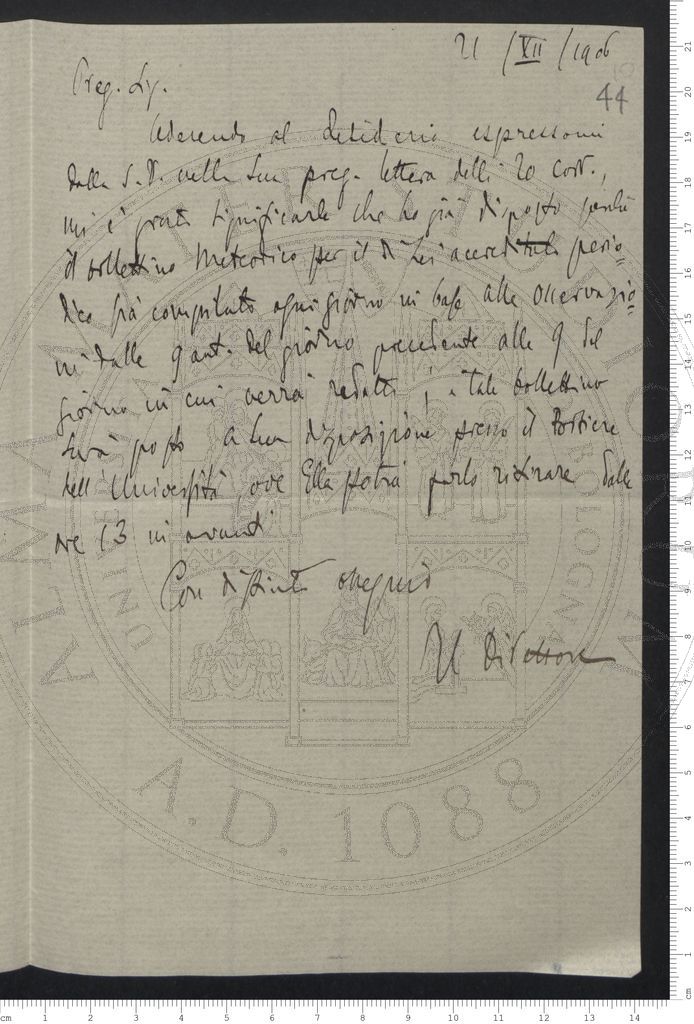 21 / XII / 1906
44
Preg. Sig.
Aderendo al desiderio espressomi
dalla S. V. nella Sua preg. lettera delli 20 corr.,
mi è grato significarle che ho già disposto perchè
il bollettino Meteorico per il di Lei accreditato perio=
dico sia compilato ogni giorno in base alle osservazio=
ni dalle 9 ant. del giorno precedente alle 9 del
giorno in cui verrà redatto; e tale bollettino
sarà posto a Sua disposizione presso il Portiere
dell'Università ove Ella potrà farlo ritirare dalle
ore 13 in avanti
Con distinto ossequio
Il Direttore
A.D. 1088